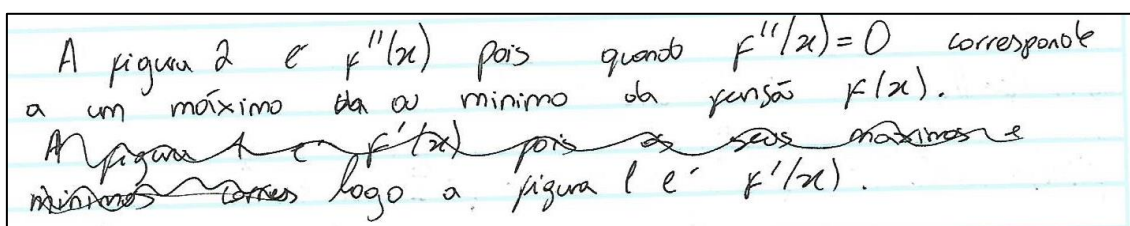 A figura 2 é f''(x) pois quando f''(x)=0 corresponde
a um máximo da ou minimo da função f(x).
A figura 1 é f'(x) pois os seus maximos e
minimos corres logo a figura 1 é f'(x).